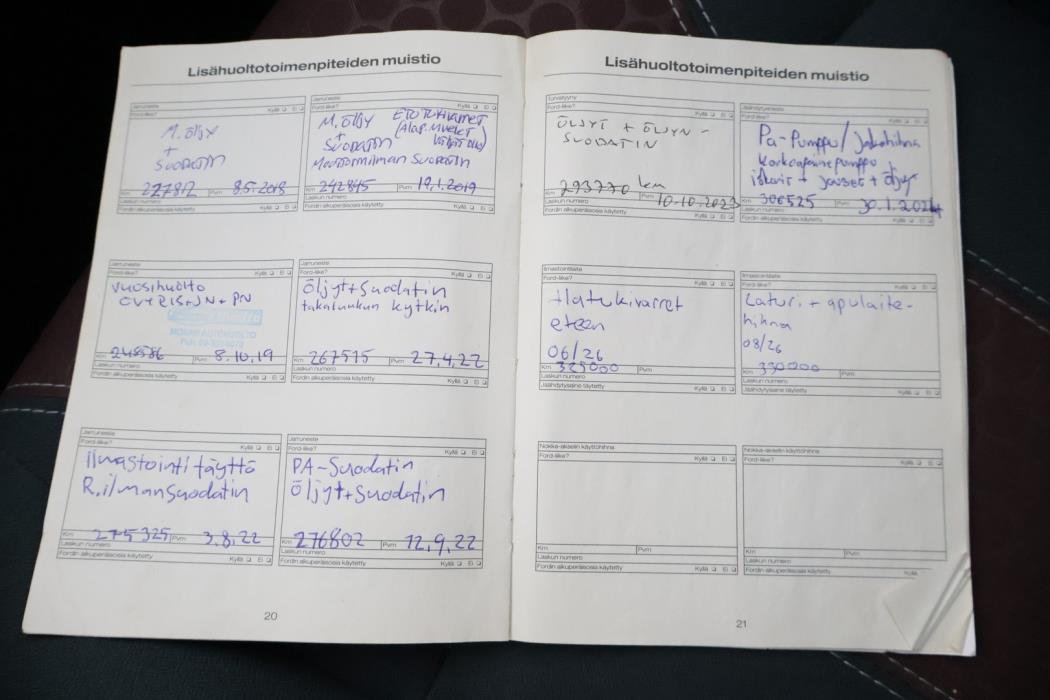 Lisähuoltotoimenpiteiden muistio
Jarruneste
Ford-liike? Kyllä Ei
M. ÖLJY
+
SUODATIN
Km 227812 Pvm 8.5.2018
Laskun numero
Fordin alkuperäisosia käytetty Kyllä Ei
Jarruneste
Ford-liike? Kyllä Ei
M. ÖLJY
+
SUODATIN
ETUTUKIVARRET
(ALAP. NIVELET
Moottorinilman SUODATIN
Km 242845 Pvm 19.1.2019
Laskun numero
Fordin alkuperäisosia käytetty Kyllä Ei
Jarruneste
Ford-liike? Kyllä Ei
VUOSIHUOLTO
Km 248586 Pvm 8.10.19
Laskun numero
Fordin alkuperäisosia käytetty Kyllä Ei
Jarruneste
Ford-liike? Kyllä Ei
Öljyt+Suodatin
takaluukun kytkin
Km 267515 Pvm 27.4.22
Laskun numero
Fordin alkuperäisosia käytetty Kyllä Ei
Jarruneste
Ford-liike? Kyllä Ei
ilmastointi täyttö
R.ilmanSuodatin
Km 275325 Pvm 3.8.22
Laskun numero
Fordin alkuperäisosia käytetty Kyllä Ei
Jarruneste
Ford-liike? Kyllä Ei
PA-Suodatin
Öljyt+Suodatin
Km 276802 Pvm 12.9.22
Laskun numero
Fordin alkuperäisosia käytetty Kyllä Ei
20
Lisähuoltotoimenpiteiden muistio
Turvatyyny
Ford-liike? Kyllä Ei
ÖLJYT + ÖLJYN-
SUODATIN
Km 293770 km Pvm 10.10.2023
Laskun numero
Fordin alkuperäisosia käytetty Kyllä Ei
Jäähdytysneste
Ford-liike? Kyllä Ei
Pa-Pumppu/Jakohihna
Korkeapainepumppu
iskarit + jouset + öljyt
Km 306525 Pvm 30.1.2024
Laskun numero
Fordin alkuperäisosia käytetty Kyllä Ei
Ilmastointilaite
Ford-liike? Kyllä Ei
Alatukivarret
eteen
06/26
Km 325000 Pvm
Laskun numero
Jäähdytysaine täytetty Kyllä Ei
Ilmastointilaite
Ford-liike? Kyllä Ei
Laturi + apulaite-
hihna
08/26
Km 330000 Pvm
Laskun numero
Jäähdytysaine täytetty Kyllä Ei
Nokka-akselin käyttöhihna
Ford-liike? Kyllä Ei
Km Pvm
Laskun numero
Fordin alkuperäisosia käytetty Kyllä Ei
Nokka-akselin käyttöhihna
Ford-liike? Kyllä Ei
Km Pvm
Laskun numero
Fordin alkuperäisosia käytetty Kyllä
21